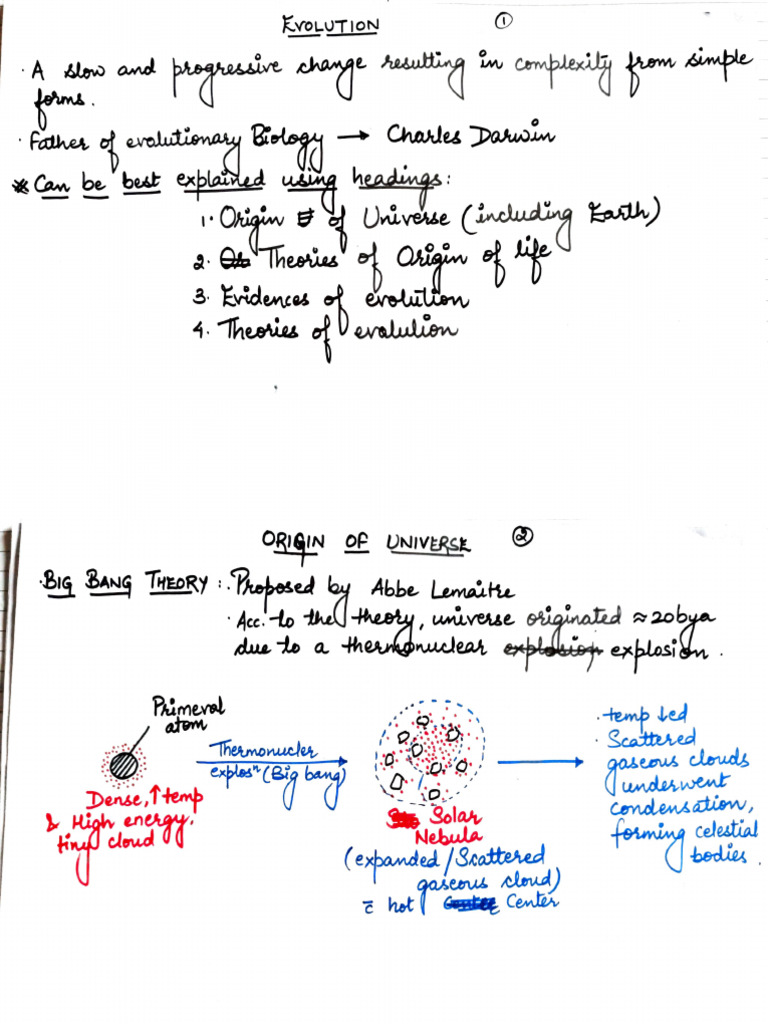 EVOLUTION ①
· A slow and progressive change resulting in complexity from simple
forms.
· Father of evolutionary Biology → Charles Darwin
* Can be best explained using headings:
1. Origin of Universe (including Earth)
2. Theories of Origin of life
3. Evidences of evolution
4. Theories of evalulion
ORIGIN OF UNIVERSE ②
· BIG BANG THEORY : · Proposed by Abbe Lemaitre
· Acc. to the theory, universe originated ≈ 20bya
due to a thermonuclear explosion explosion.
Primeval
atom
Dense, ↑ temp
& High energy,
tiny cloud
Thermonucler
explosⁿ (Big bang)
Solar
Nebula
(expanded/Scattered
gaseous cloud)
c̄ hot Center Center
· temp ↓ed
· Scattered
gaseous clouds
underwent
condensation,
forming celestial
bodies.